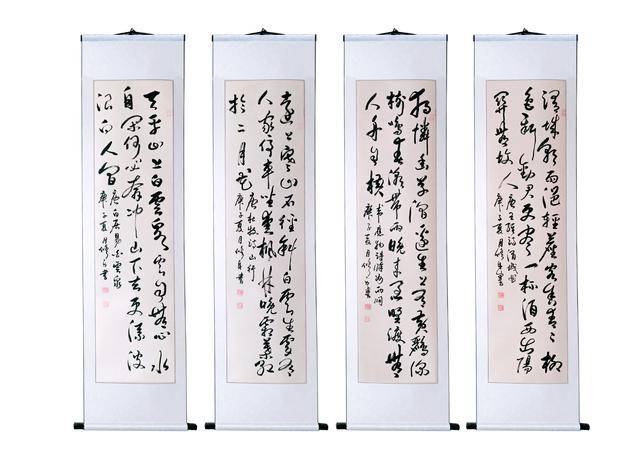 渭城朝雨浥輕塵客舍青々柳
色新勸君更盡一杯酒西出陽
關無故人
唐王維詩渭城曲
庚子夏月書
獨憐幽草澗邊生上有黃鸝深
樹鳴春潮帶雨晚來急野渡無
人舟自橫
韋應物詩滁州西澗
庚子夏月書
遠上寒山石徑斜白雲生處有
人家停車坐愛楓林晚霜葉紅
於二月花
唐杜牧詩山行
庚子夏月書
天平山上白雲泉雲自無心水
自閑何必奔沖山下去更添波
浪向人間
唐白居易白雲泉
庚子夏月書